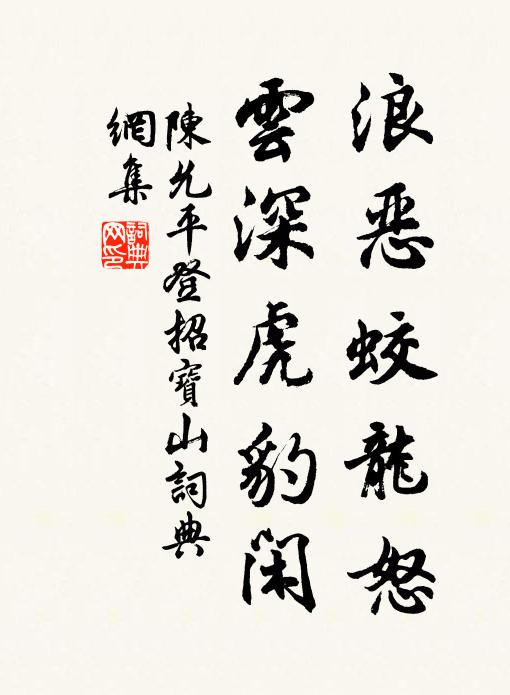 浪惡蛟龍怒
雲深虎豹閑
陳允平登招寶山詞典
網集
詞典
网印